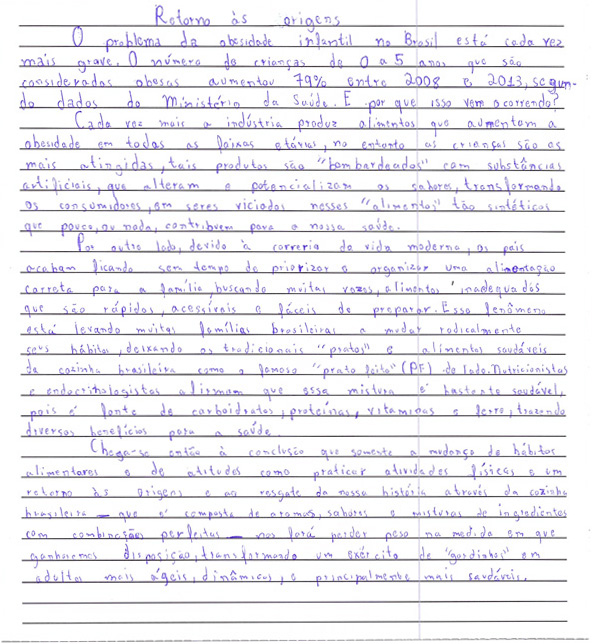 Retorno às origens
O problema da obesidade infantil no Brasil está cada vez
mais grave. O número de crianças de 0 a 5 anos que são
consideradas obesas aumentou 79% entre 2008 e 2013, segun-
do dados do Ministério da Saúde. E por que isso vem ocorrendo?
Cada vez mais a indústria produz alimentos que aumentam a
obesidade em todas as faixas etárias, no entanto as crianças são as
mais atingidas, tais produtos são "bombardeados" com substâncias
artificiais, que alteram e potencializam os sabores, transformando
os consumidores, em seres viciados nesses "alimentos" tão sintéticos
que pouco, ou nada, contribuem para a nossa saúde.
Por outro lado, devido à correria da vida moderna, os pais
acabam ficando sem tempo de priorizar e organizar uma alimentação
correta para a família buscando muitas vezes, alimentos inadequados
que são rápidos, acessíveis e fáceis de preparar. Esse fenômeno
está levando muitas famílias brasileiras a mudar radicalmente
seus hábitos, deixando os tradicionais "pratos" e alimentos saudáveis
da cozinha brasileira como o famoso "prato feito" (PF) de lado. Nutricionistas
e endocrinologistas afirmam que essa mistura é bastante saudável,
pois é fonte de carboidratos, proteínas, vitaminas e ferro, trazendo
diversos benefícios para a saúde.
Chega-se então à conclusão que somente a mudança de hábitos
alimentares e de atitudes como praticar atividades físicas e um
retorno às origens e ao resgate da nossa história através da cozinha
brasileira – que é composta de aromas, sabores e misturas de ingredientes
com combinações perfeitas – nos fará perder peso na medida em que
ganharemos disposição, transformando um exército de "gordinhos" em
adultos mais ágeis, dinâmicos, e principalmente mais saudáveis.